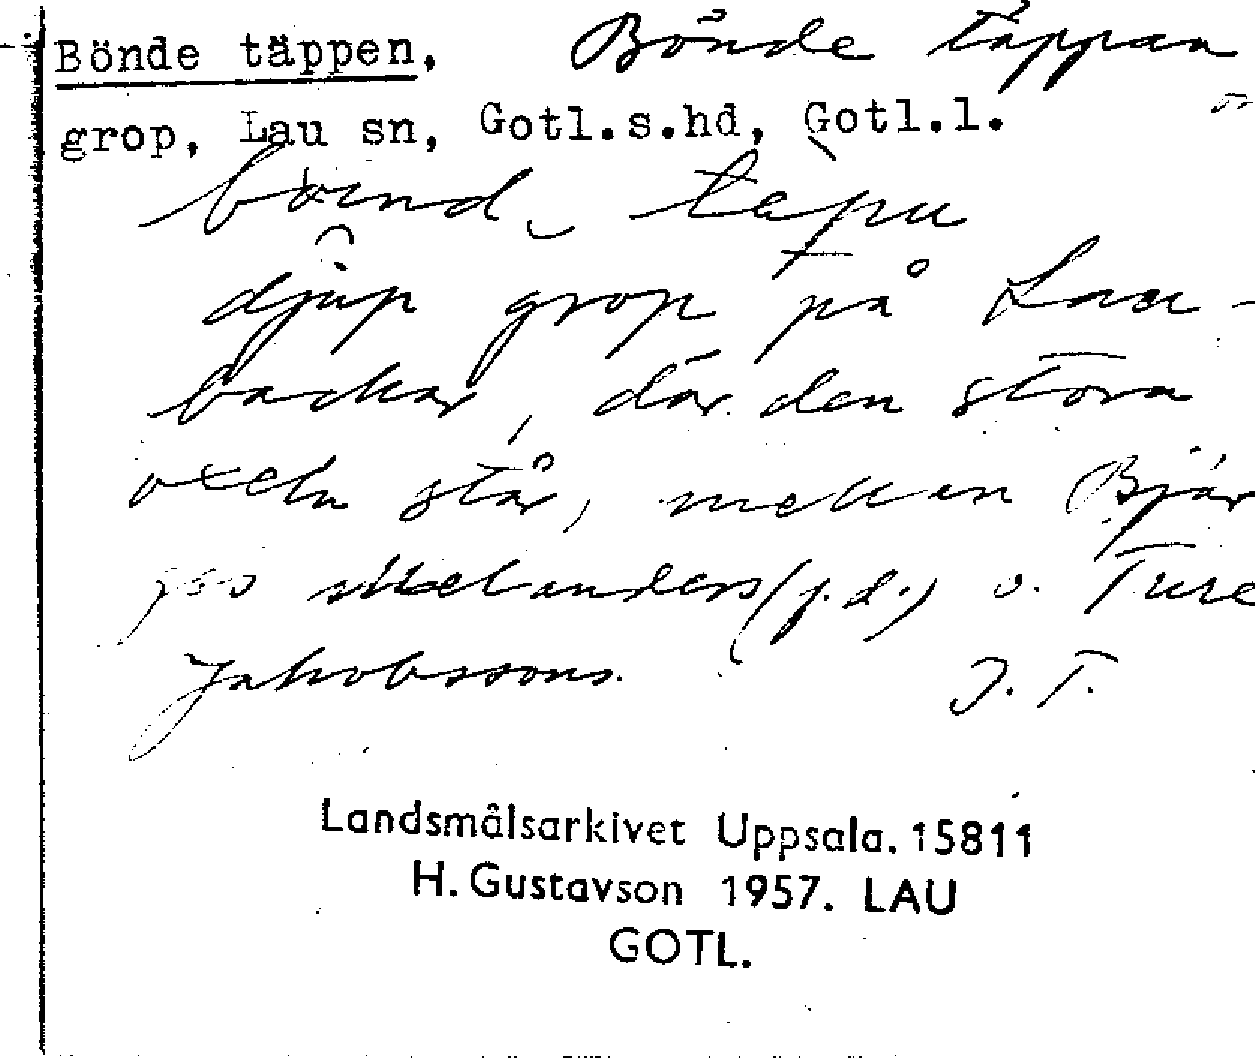 Bönde täppen, Bönde täppan
grop, Lau sn, Gotl.s.hd, Gotl.l.
djup grop på Lau-
backar, där den stora
oxeln står, mellan Bjär
ges Melanders (f.d.) o. Ture
Jakobssons. J. T.
Landsmålsarkivet Uppsala. 15811
H. Gustavson 1957. LAU
GOTL.